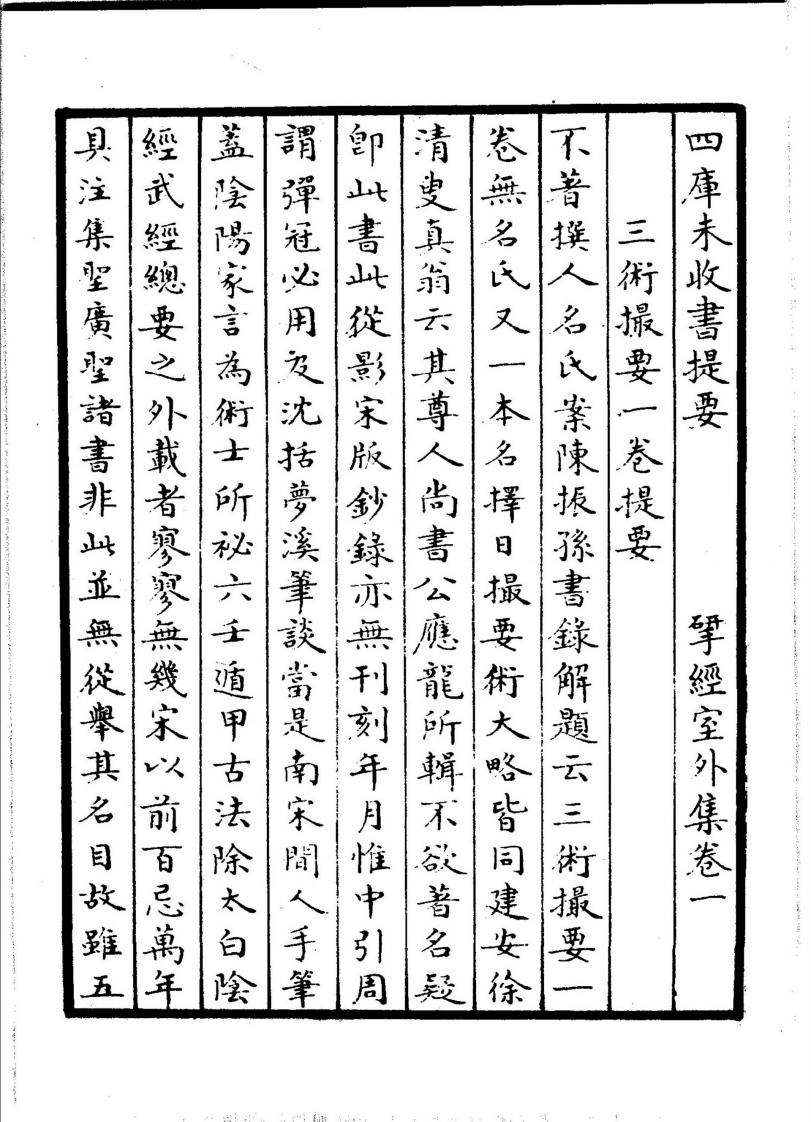 四庫未收書提要　揅經室外集卷一
三術撮要一卷提要
不著撰人名氏案陳振孫書錄解題云三術撮要一
卷無名氏又一本名擇日撮要術大略皆同建安徐
清叟真翁云其尊人尚書公應龍所輯不欲著名疑
卽此書此從影宋版鈔錄亦無刊刻年月惟中引周
謂彈冠必用及沈括夢溪筆談當是南宋間人手筆
蓋陰陽家言為術士所祕六壬遁甲古法除太白陰
經武經總要之外載者寥寥無幾宋以前百忌萬年
具注集聖廣聖諸書非此並無從舉其名目故雖五